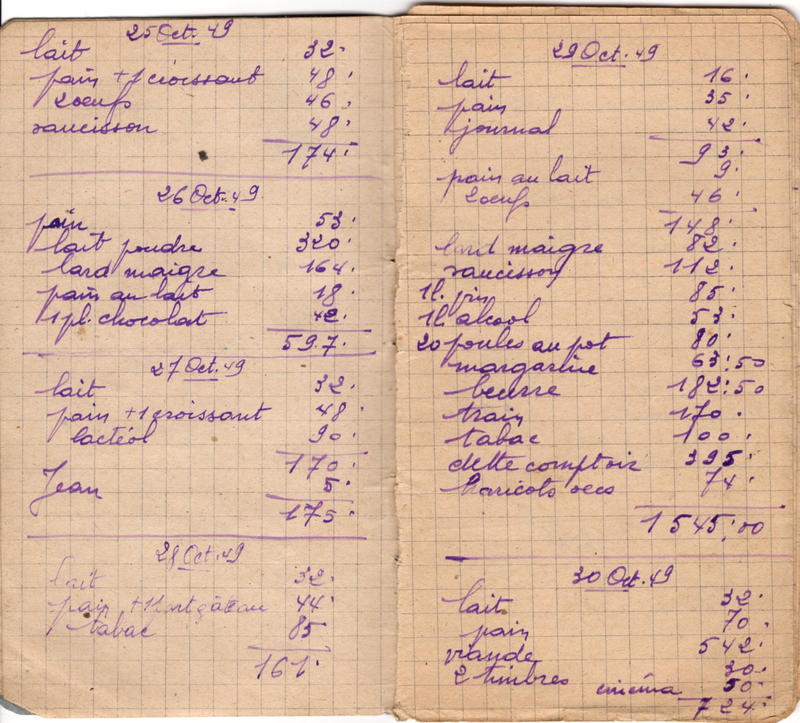 25 Oct. 49
lait 32.
pain + 1 croissant 48.
2 oeufs 46.
saucisson 48.
174.
26 Oct. 49
pain 53.
lait poudre 320.
lard maigre 164.
pain au lait 18.
1 pl. chocolat 42.
597.
27 Oct. 49
lait 32.
pain + 1 croissant 48.
lactéol 90.
170.
Jean 5.
175.
28 Oct. 49
lait 32.
pain + 1 gâteau 44.
tabac 85
161.
29 Oct. 49
lait 16.
pain 35.
journal 42.
93.
pain au lait 9.
2 oeufs 46.
148.
lard maigre 82.
saucisson 112.
1l. 85.
1l. alcool 53.
20 poules au pot 80.
margarine 63:50
beurre 182:50
train 170.
tabac 100.
dette comptoir 395.
haricots secs 74.
1545:00
30 Oct. 49
lait 32.
pain 70.
viande 542.
2 timbres 30.
cinéma 50.
724.